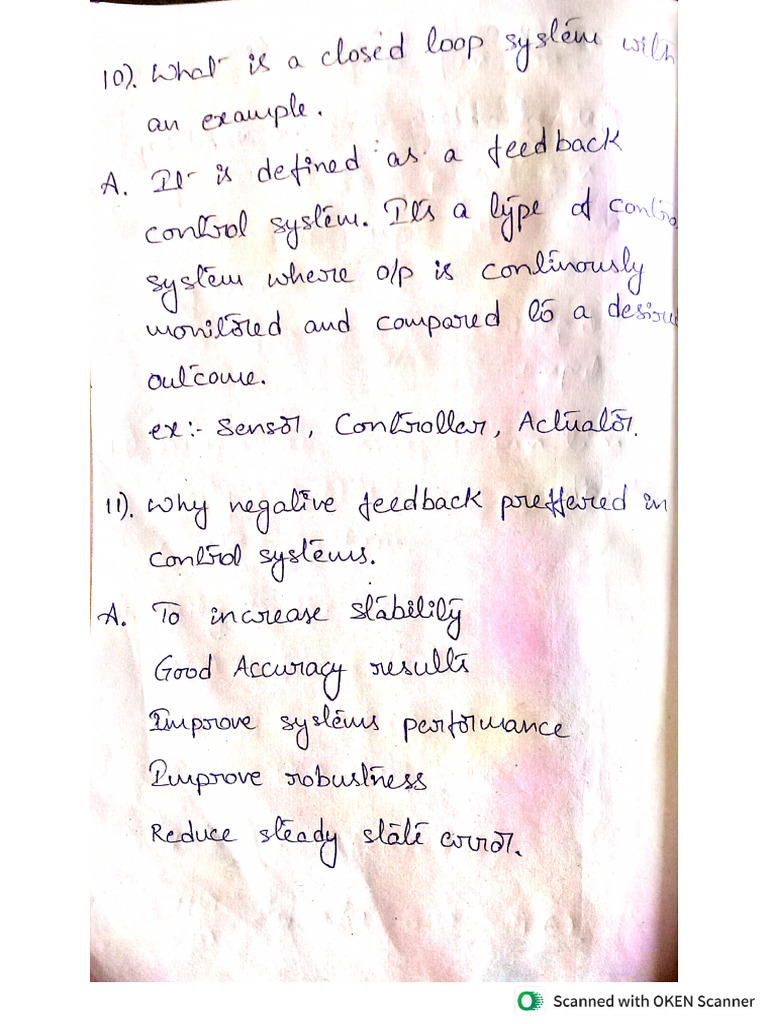 10). What is a closed loop system with
an example.
A. It is defined as a feedback
control system. It's a type of contro
system where o/p is continously
monitored and compared to a desire
outcome.
ex:- Sensor, Controller, Actuator.
11). Why negative feedback preffered in
control systems.
A. To increase stability
Good Accuracy results
Improve systems performance
Improve robustness
Reduce steady state error.
Scanned with OKEN Scanner